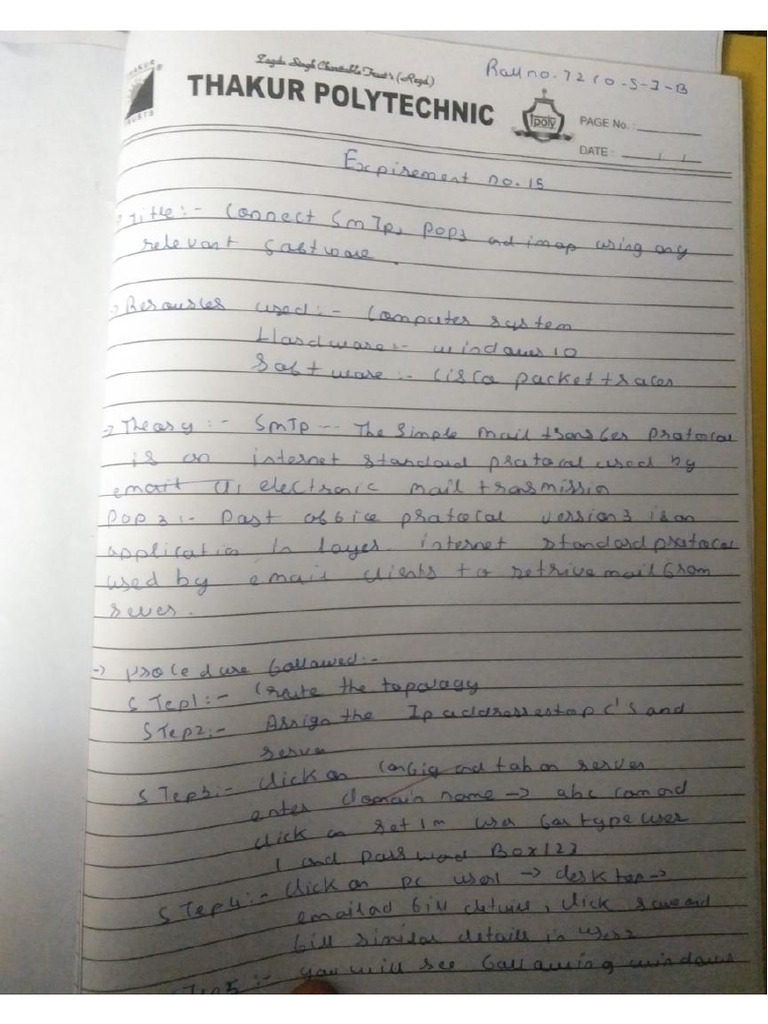 Zagdu Singh Charitable Trust's (Regd)
THAKUR POLYTECHNIC
Roll no. 72 CO-5-I-B
poly
PAGE No. :
DATE : / /
Expirement no. 15
Title:- Connect SmTp, pop3 and imap using any
relevant software.
Resources used:- Computer system
Hardware:- windows 10
Software:- Cisco packet tracer
→ Theory:- SmTp -- The Simple mail transfer protocol
is an internet standard protocal used by
electronic mail trasmission
Pop3:- Post office protocal version 3 is an
application layer internet standard protocal
used by email clients to retrive mail from
sever.
→ procedure followed:-
STep1:- Create the topology
STep2:- Assign the Ip addresses to pC'S and
server
STep3:- click on Config and tab on server
enter domain name → abc com and
click on set user for type user
1 and password Box123
STep4:- Click on pc user1 → desktop →
email ad fill details, click save and
fill similar details in user2
STep5:- you will see following windows